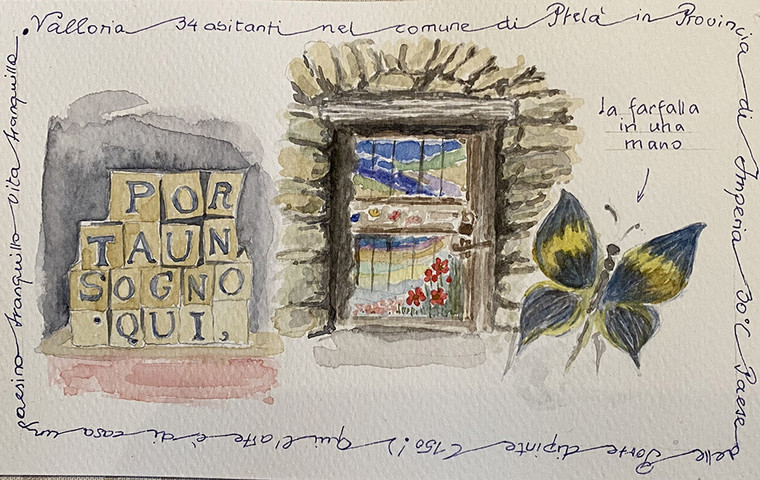 Valloria 34 abitanti nel comune di Prelà in Provincia
di Imperia 30°C Paese
delle Porte dipinte (150!) qui l'arte è di casa un
paesino tranquillo vita tranquilla.
POR
TAUN
SOGNO
·QUI,
la farfalla
in una
mano